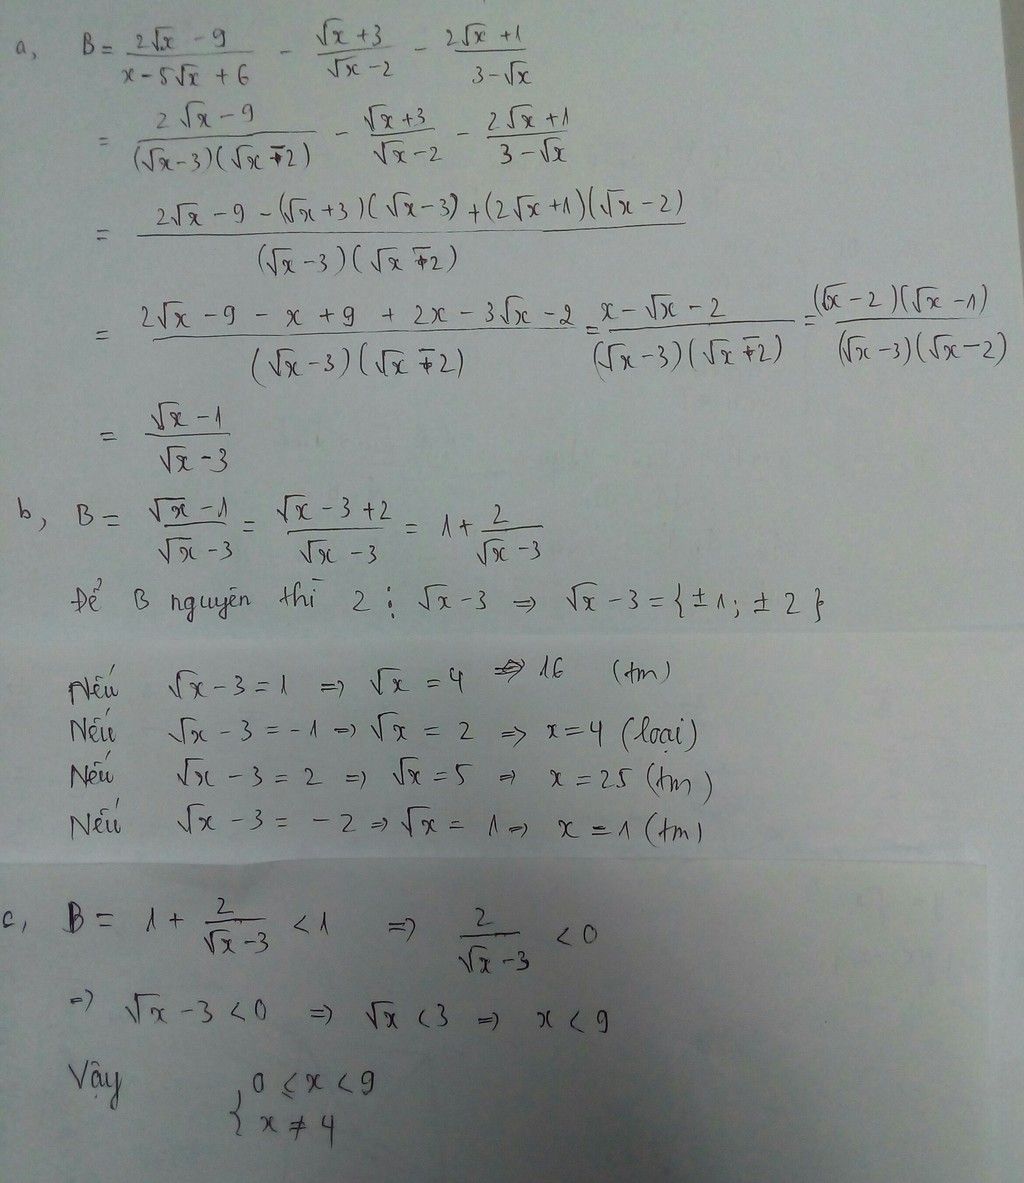 a, B = (2√x - 9)/(x - 5√x + 6) - (√x + 3)/(√x - 2) - (2√x + 1)/(3 - √x)
= (2√x - 9)/((√x - 3)(√x - 2)) - (√x + 3)/(√x - 2) - (2√x + 1)/(3 - √x)
= (2√x - 9 - (√x + 3)(√x - 3) + (2√x + 1)(√x - 2))/((√x - 3)(√x - 2))
= (2√x - 9 - x + 9 + 2x - 3√x - 2)/((√x - 3)(√x - 2)) = (x - √x - 2)/((√x - 3)(√x - 2)) = ((√x - 2)(√x - 1))/((√x - 3)(√x - 2))
= (√x - 1)/(√x - 3)
b, B = (√x - 1)/(√x - 3) = (√x - 3 + 2)/(√x - 3) = 1 + 2/(√x - 3)
Để B nguyên thì 2 ⋮ √x - 3 => √x - 3 = {±1; ±2}
Nếu √x - 3 = 1 => √x = 4 => 16 (tm)
Nếu √x - 3 = -1 => √x = 2 => x = 4 (loại)
Nếu √x - 3 = 2 => √x = 5 => x = 25 (tm)
Nếu √x - 3 = -2 => √x = 1 => x = 1 (tm)
c, B = 1 + 2/(√x - 3) < 1 => 2/(√x - 3) < 0
=> √x - 3 < 0 => √x < 3 => x < 9
Vậy { 0 ≤ x < 9
x ≠ 4